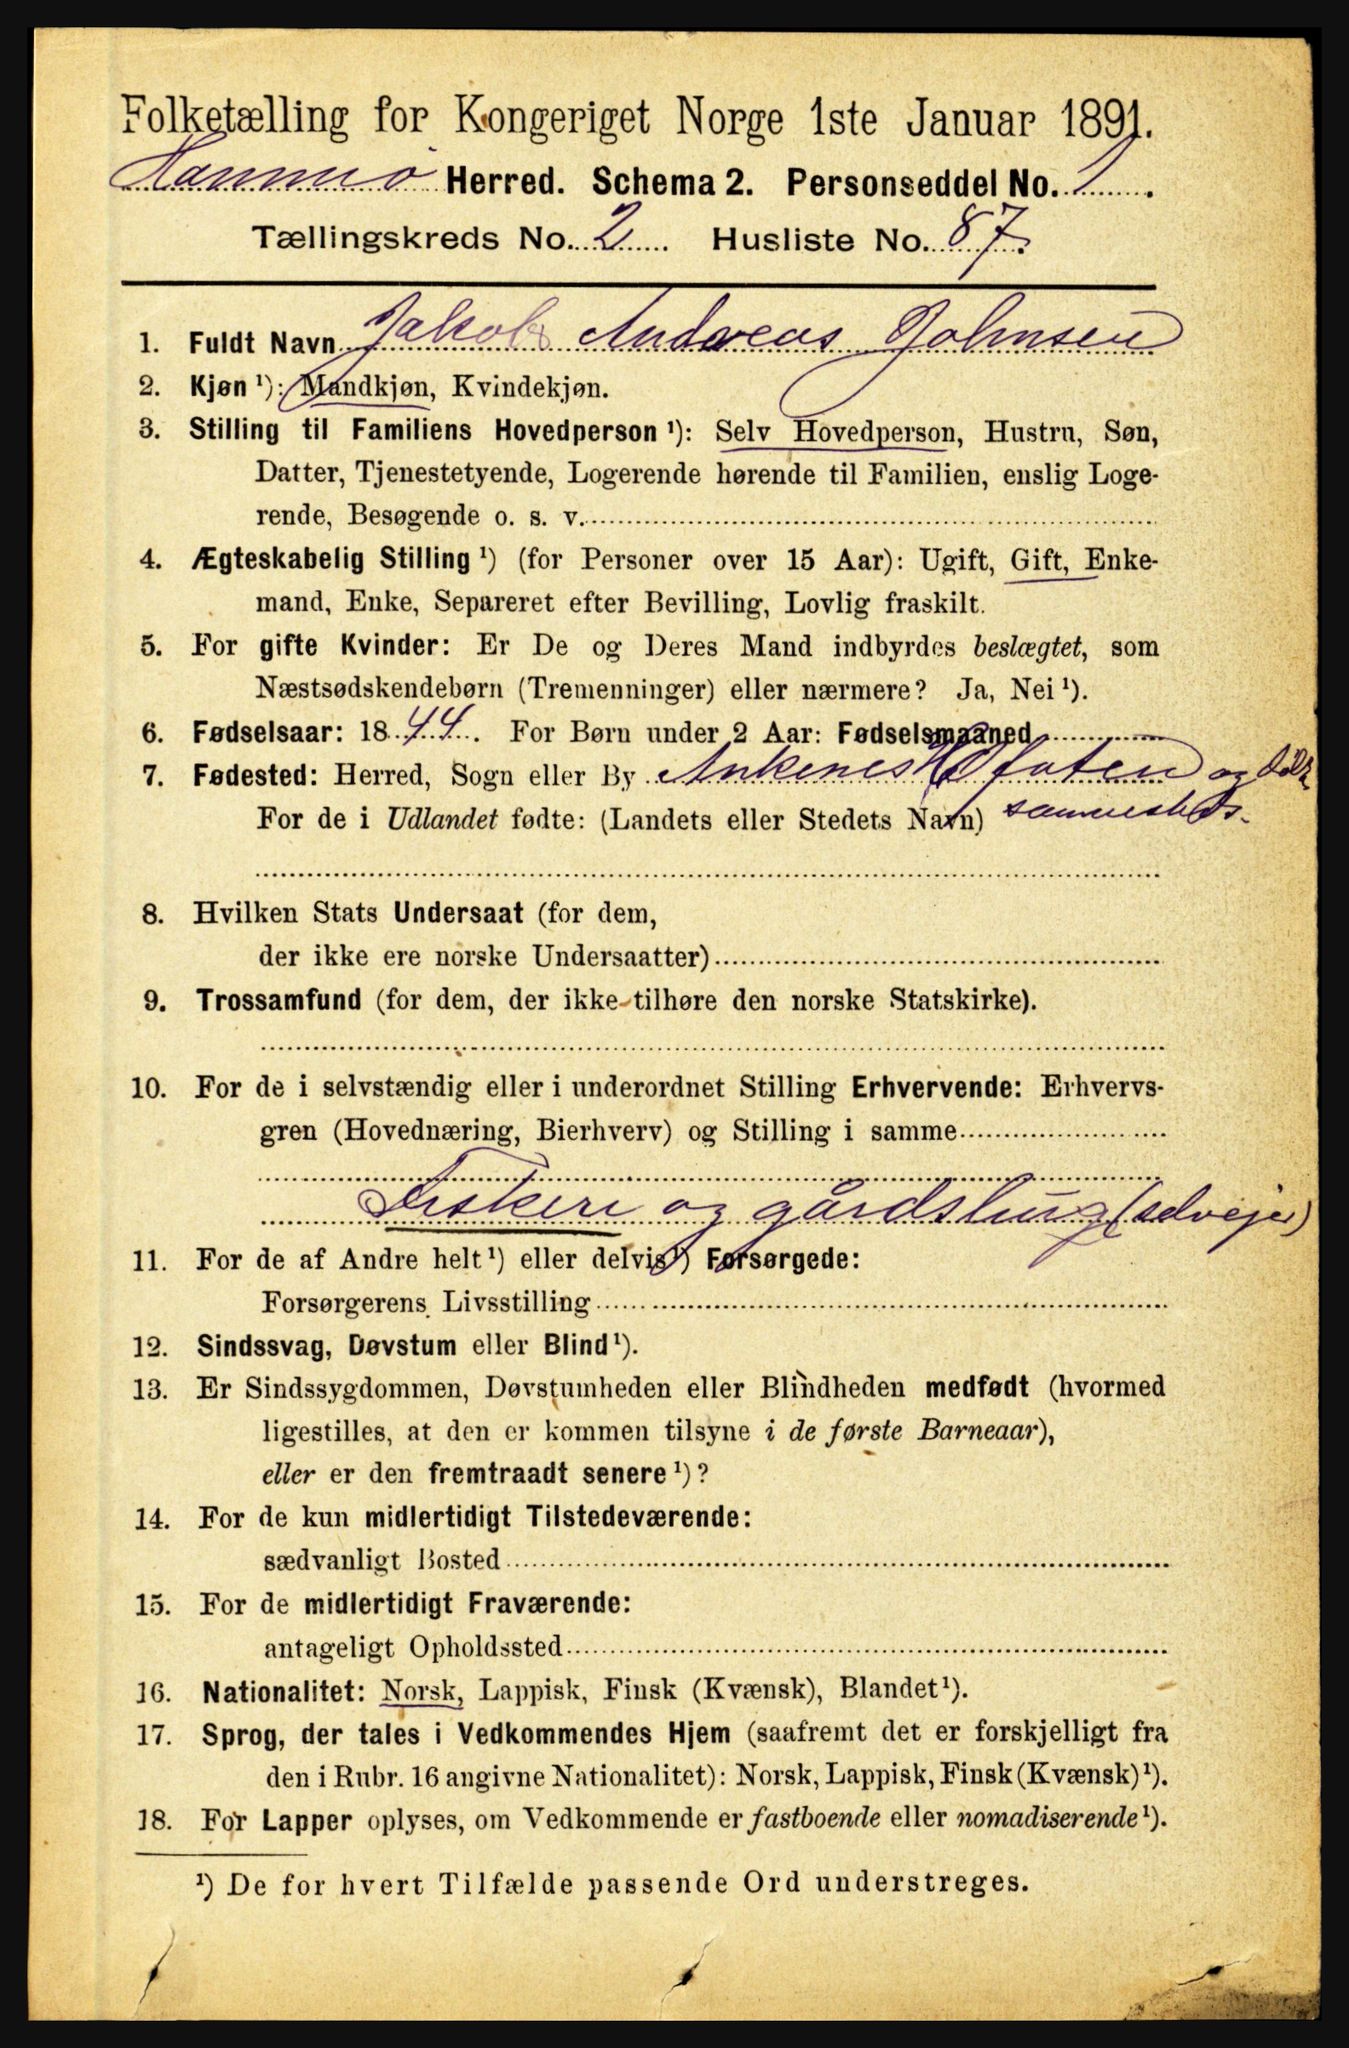 Folketælling for Kongeriget Norge 1ste Januar 1891.
Hammerø Herred. Schema 2. Personseddel No. 1.
Tællingskreds No. 2 Husliste No. 87.
1. Fuldt Navn Jakob Andreas Johnsen
2. Kjøn ¹): Mandkjøn, Kvindekjøn.
3. Stilling til Familiens Hovedperson ¹): Selv Hovedperson, Hustru, Søn,
Datter, Tjenestetyende, Logerende hørende til Familien, enslig Loge-
rende, Besøgende o. s. v.
4. Ægteskabelig Stilling ¹) (for Personer over 15 Aar): Ugift, Gift, Enke-
mand, Enke, Separeret efter Bevilling, Lovlig fraskilt.
5. For gifte Kvinder: Er De og Deres Mand indbyrdes beslægtet, som
Næstsødskendebørn (Tremenninger) eller nærmere? Ja, Nei ¹).
6. Fødselsaar: 1844. For Børn under 2 Aar: Fødselsmaaned
7. Fødested: Herred, Sogn eller By Ankenes Ofoten og
For de i Udlandet fødte: (Landets eller Stedets Navn) sammesteds.
8. Hvilken Stats Undersaat (for dem,
der ikke ere norske Undersaatter)
9. Trossamfund (for dem, der ikke tilhøre den norske Statskirke).
10. For de i selvstændig eller i underordnet Stilling Erhvervende: Erhvervs-
gren (Hovednæring, Bierhverv) og Stilling i samme
Fiskeri og gårdsbrug (selvejer)
11. For de af Andre helt ¹) eller delvis ¹) Forsørgede:
Forsørgerens Livsstilling
12. Sindssvag, Døvstum eller Blind ¹).
13. Er Sindssygdommen, Døvstumheden eller Blindheden medfødt (hvormed
ligestilles, at den er kommen tilsyne i de første Barneaar),
eller er den fremtraadt senere ¹)?
14. For de kun midlertidigt Tilstedeværende:
sædvanligt Bosted
15. For de midlertidigt Fraværende:
antageligt Opholdssted
16. Nationalitet: Norsk, Lappisk, Finsk (Kvænsk), Blandet ¹).
17. Sprog, der tales i Vedkommendes Hjem (saafremt det er forskjelligt fra
den i Rubr. 16 angivne Nationalitet): Norsk, Lappisk, Finsk (Kvænsk) ¹).
18. For Lapper oplyses, om Vedkommende er fastboende eller nomadiserende ¹).
¹) De for hvert Tilfælde passende Ord understreges.